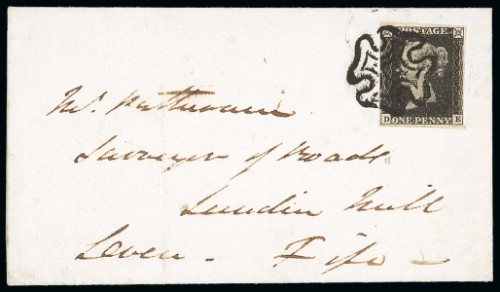 POSTAGE
D ONE PENNY E
Mr.
Surveyor of Roads
Lundin Mill
Leven - Fife -